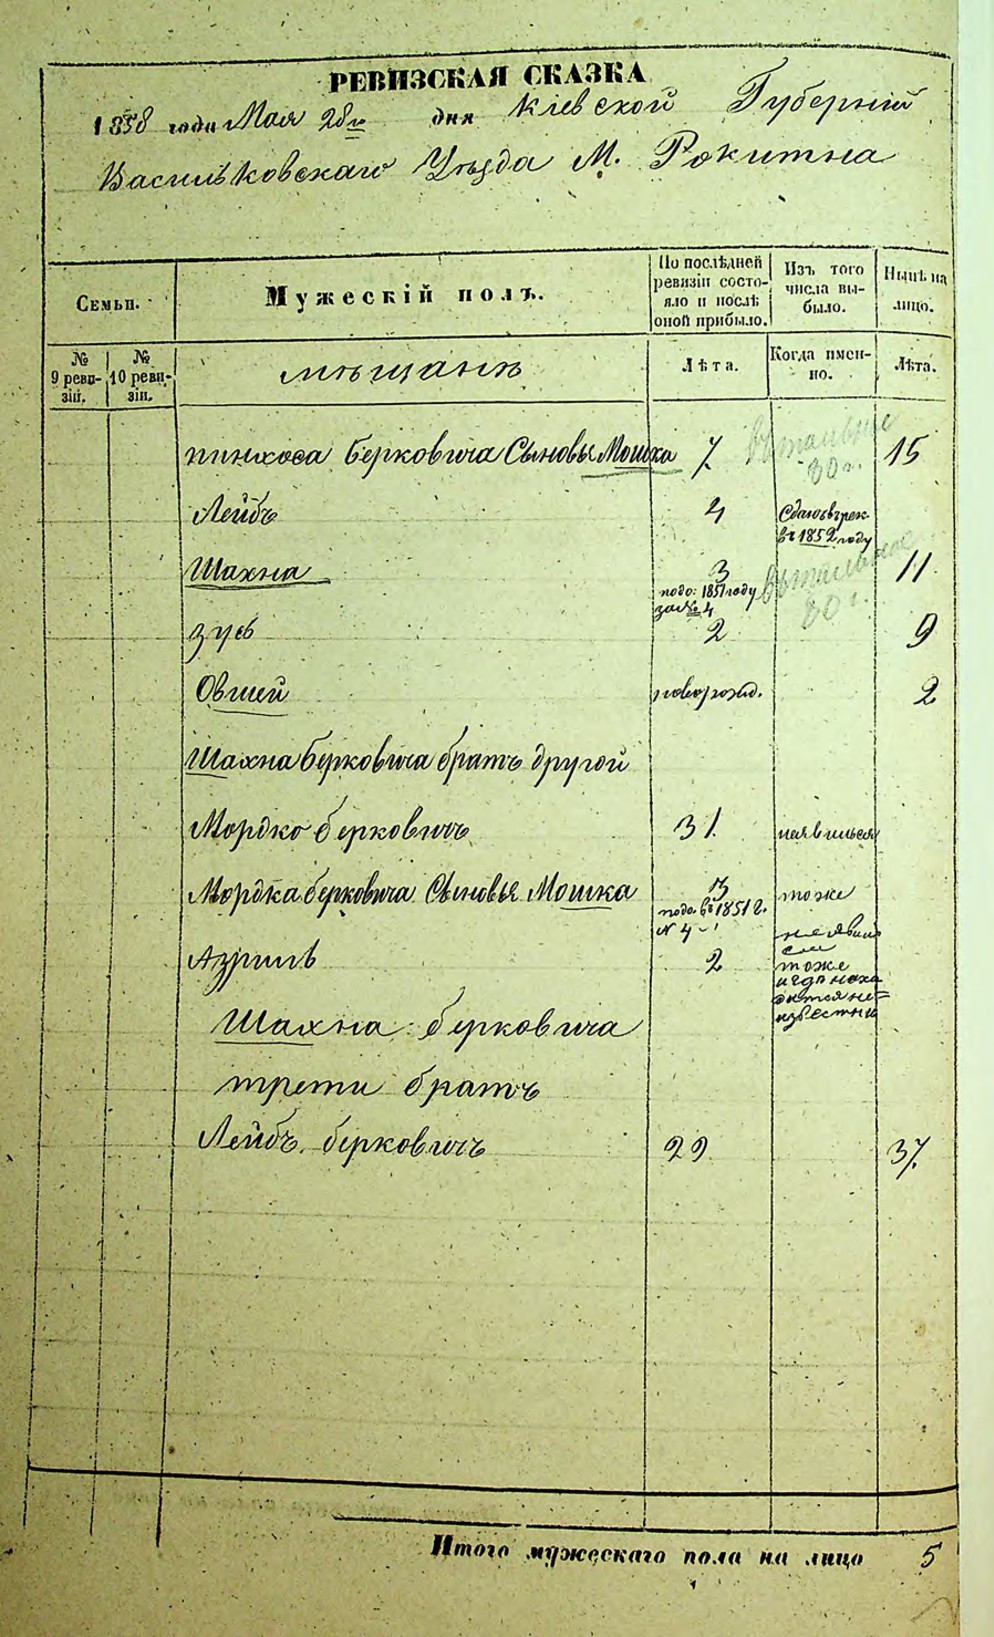 РЕВИЗСКАЯ СКАЗКА
1858 года Мая 28го дня Кіевской Губерніи
Васильковскаго Уѣзда М. Рокитна
Семьи.
Мужескій полъ.
По послѣдней ревизіи состояло и послѣ оной прибыло.
Изъ того числа выбыло.
Нынѣ на лицо.
№ 9 ревизіи.
№ 10 ревизіи.
мѣщанъ
Лѣта.
Когда именно.
Лѣта.
Пинхоса Берковича Сыновья Мошка 7. 15
Лейбъ 4 Сданъ въ рек. въ 1852 году
Шахна 3 11
подо: 1851 году
за № 4
Зусь 2 9
Овшей новорожд. 2
Шахна Берковича братъ другой
Мордко Берковичъ 31. неявился
Мордка Берковича Сыновья Мошка 13 тоже
подо. въ 1851 г.
№ 4
Азриль 2 неявился
тоже
и гдѣ находится неизвестно
Шахна Берковича
трети братъ
Лейбъ Берковичъ 29 37.
Итого мужескаго пола на лицо 5